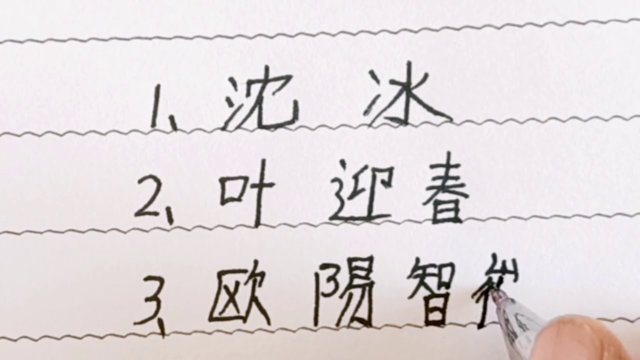 1、沈冰
2、叶迎春
3、欧陽智